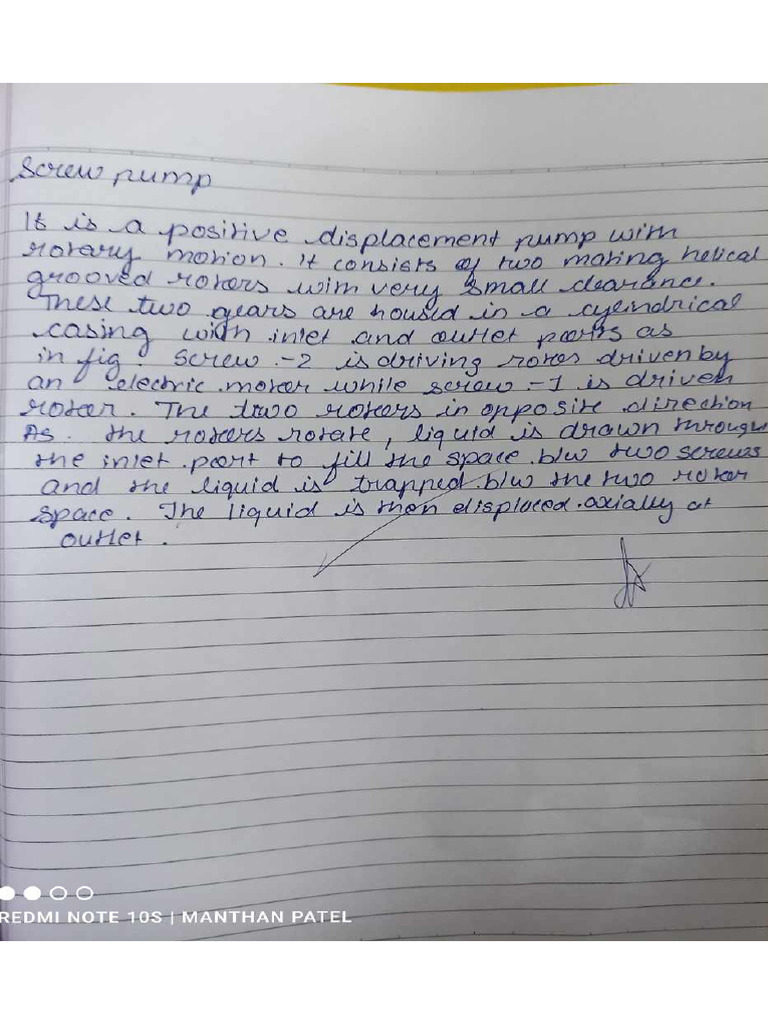 Screw pump
It is a positive displacement pump with
rotary motion. It consists of two mating helical
grooved rotors with very small clearance.
These two gears are housed in a cylindrical
casing with inlet and outlet ports as
in fig. Screw-2 is driving rotor driven by
an electric motor while screw-1 is driven
rotor. The two rotors in opposite direction
As the rotors rotate, liquid is drawn through
the inlet port to fill the space b/w two screws
and the liquid is trapped b/w the two rotor
space. The liquid is then displaced axially at
outlet.
REDMI NOTE 10S | MANTHAN PATEL